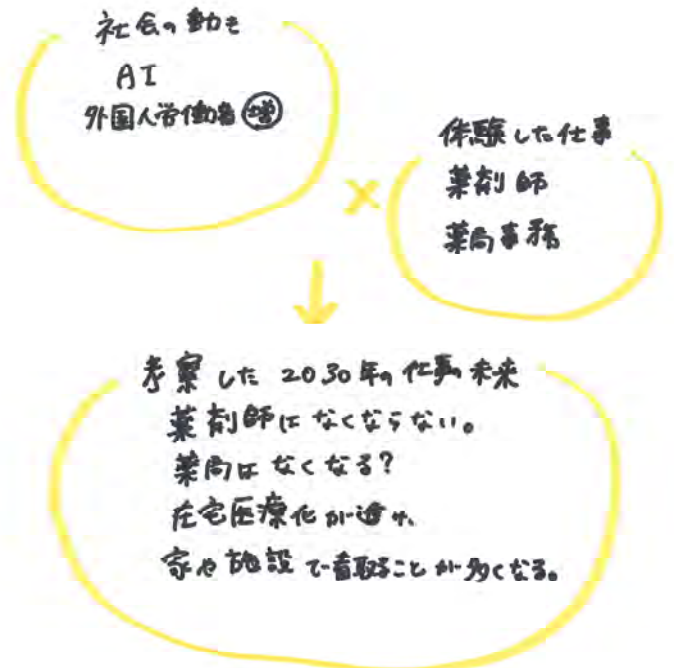 社会の動き
AI
外国人労働者 増
×
体験した仕事
薬剤師
薬局事務
考察した2030年の仕事の未来
薬剤師はなくならない。
薬局はなくなる?
在宅医療化が進み、
家や施設で看取ることが多くなる。